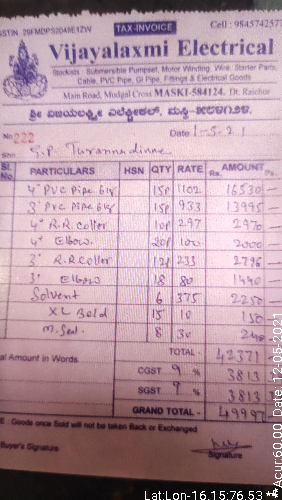 GSTIN 29FMDPS2049E1ZW TAX-INVOICE Cell : 9845742577
Vijayalaxmi Electrical
Stockists : Submersible Pumpset, Motor Winding Wire, Starter Parts,
Cable, PVC Pipe, GI Pipe, Fittings & Electrical Goods
Main Road, Mudgal Cross MASKI-584124. Dt. Raichur
ಶ್ರೀ ವಿಜಯಲಕ್ಷ್ಮೀ ಎಲೆಕ್ಟ್ರೀಕಲ್, ಮಸ್ಕಿ-೫೮೪೧೨೪.
No. 222 Date 1-5-21
Shri G.P.
Sl No. PARTICULARS HSN QTY RATE AMOUNT Rs. Ps.
4" PVC Pipe 6kg 15p 1102 16530 —
3" PVC Pipe 6kg 15p 933 13995
4" R.R. Coller 10p 297 2970 —
4" Elbow 20p 100 2000
3" R.R Coller 12p 233 2796
3" Elbow 18 80 1440
Solvent 6 375 2250
XL Bold 15 10 150
M.Seal 8 30 240
Total Amount in Words TOTAL - 42371
CGST 9 % 3813
SGST 9 % 3813
GRAND TOTAL - 49997
E : Goods once Sold will not be taken Back or Exchanged
Buyer's Signature Signature
Lat:Lon-16.15:76.53
Acur:60.00 Date: 12-05-2021